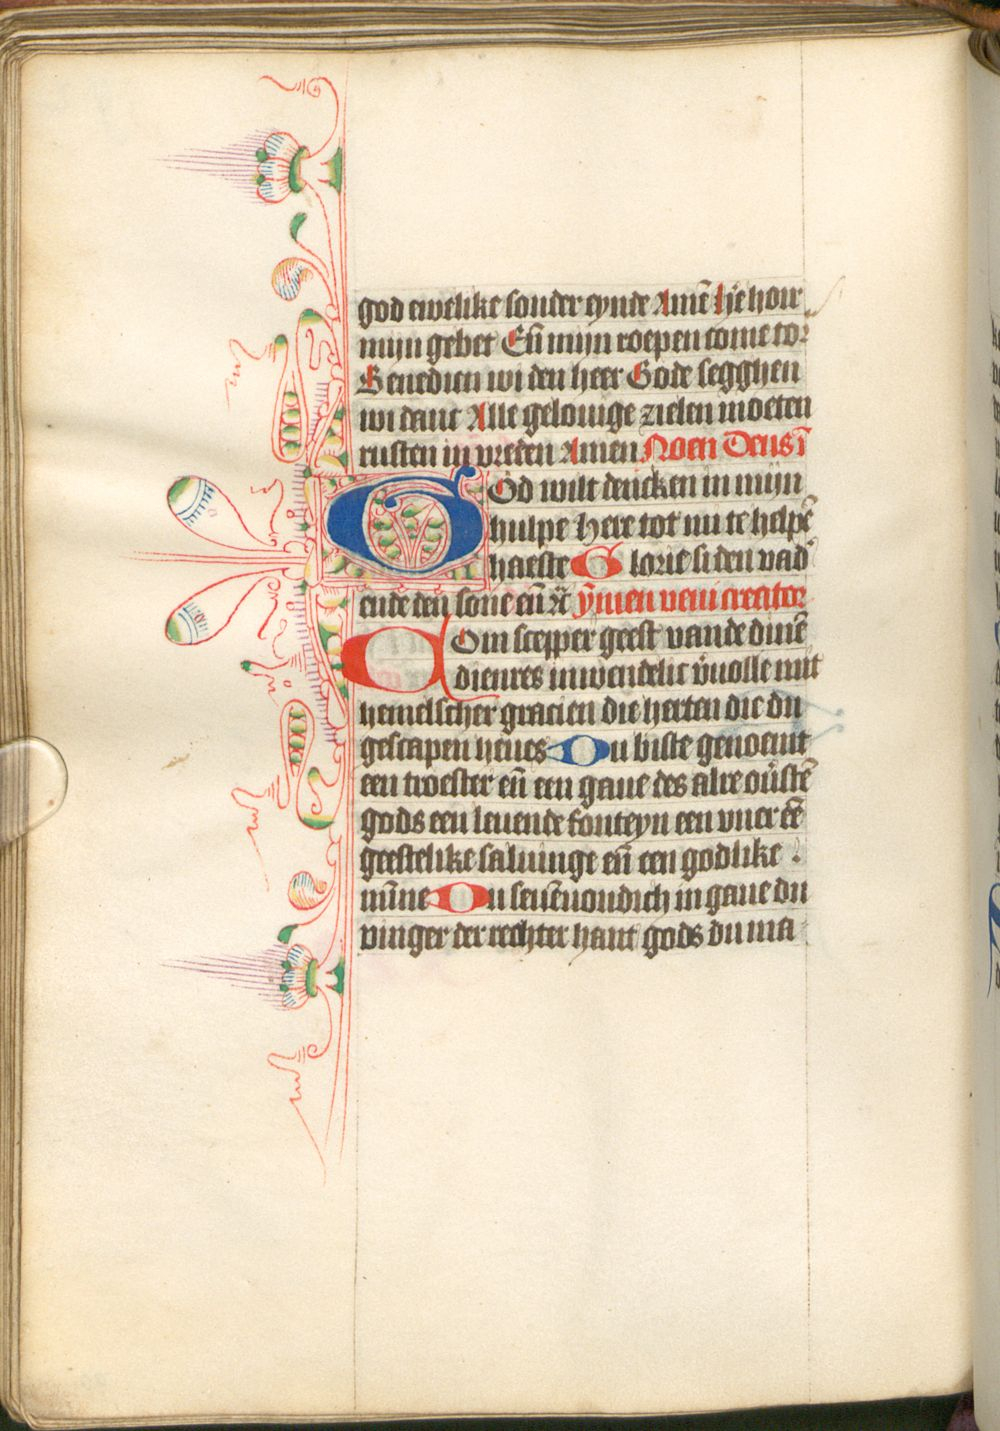 god ewelike sonder eynde Amē h̄e hoir
mijn gebet Eñ mijn roepen come tor
Benedien wi den heer Gode segghen
wi danc Alle gelouige zielen moeten
rusten in vreden Amen Noen Deus ī
GOd wilt dencken in mijn
hulpe Here tot mi te helpē
haeste Glorie si den vad'
ende den sone eñ ꝛc ȳmen veni creator
Com scepper geest van de dinē
dienres inwendelic v̄uolle mit
hemelscher gracien die herten die du
gescapen heues Du biste genoemt
een troester eñ een gaue des alre ou̇stē
gods een leuende fonteyn een vuer eē
geestelike saluinge eñ een godlike
mīne Du seuēuoudich in gaue du
vinger der rechter hant gods du ma